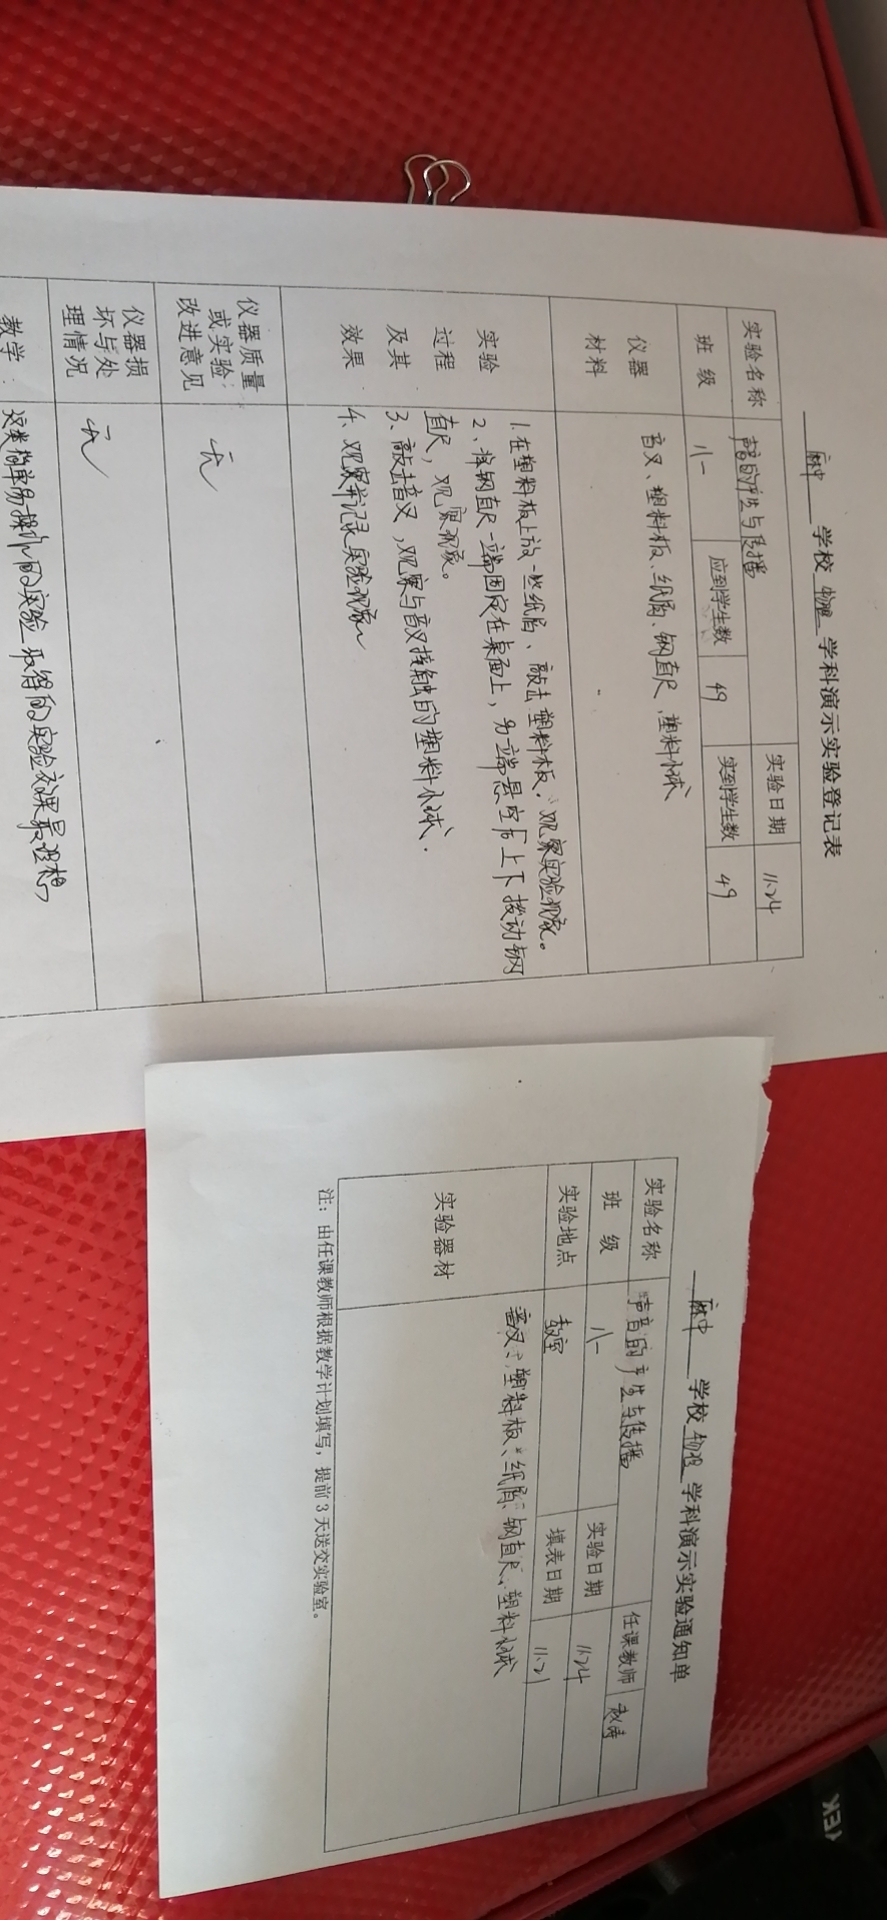 麻中 学校 物理 学科演示实验登记表
实验名称 声音的产生与传播 实验日期 11.24
班 级 八一 应到学生数 49 实到学生数 49
仪器
材料
音叉、塑料板、纸屑、钢直尺、塑料小球
实验
过程
及其
效果
1.在塑料板上放一些纸屑、敲击塑料板,观察实验现象。
2、将钢直尺一端固定在桌面上,另一端悬空后上下拨动钢
直尺,观察现象。
3、敲击音叉,观察与音叉接触的塑料小球.
4、观察并记录实验现象
仪器质量
或实验
改进意见
无
仪器损
坏与处
理情况
无
教学
这类简单易操作的实验 取得的实验效果最理想
麻中 学校 物理 学科演示实验通知单
实验名称 声音的产生与传播 任课教师 赵涛
班 级 八一 实验日期 11.24
实验地点 教室 填表日期 11.21
实验器材
音叉、塑料板、纸屑、钢直尺、塑料小球
注：由任课教师根据教学计划填写，提前3天送交实验室。